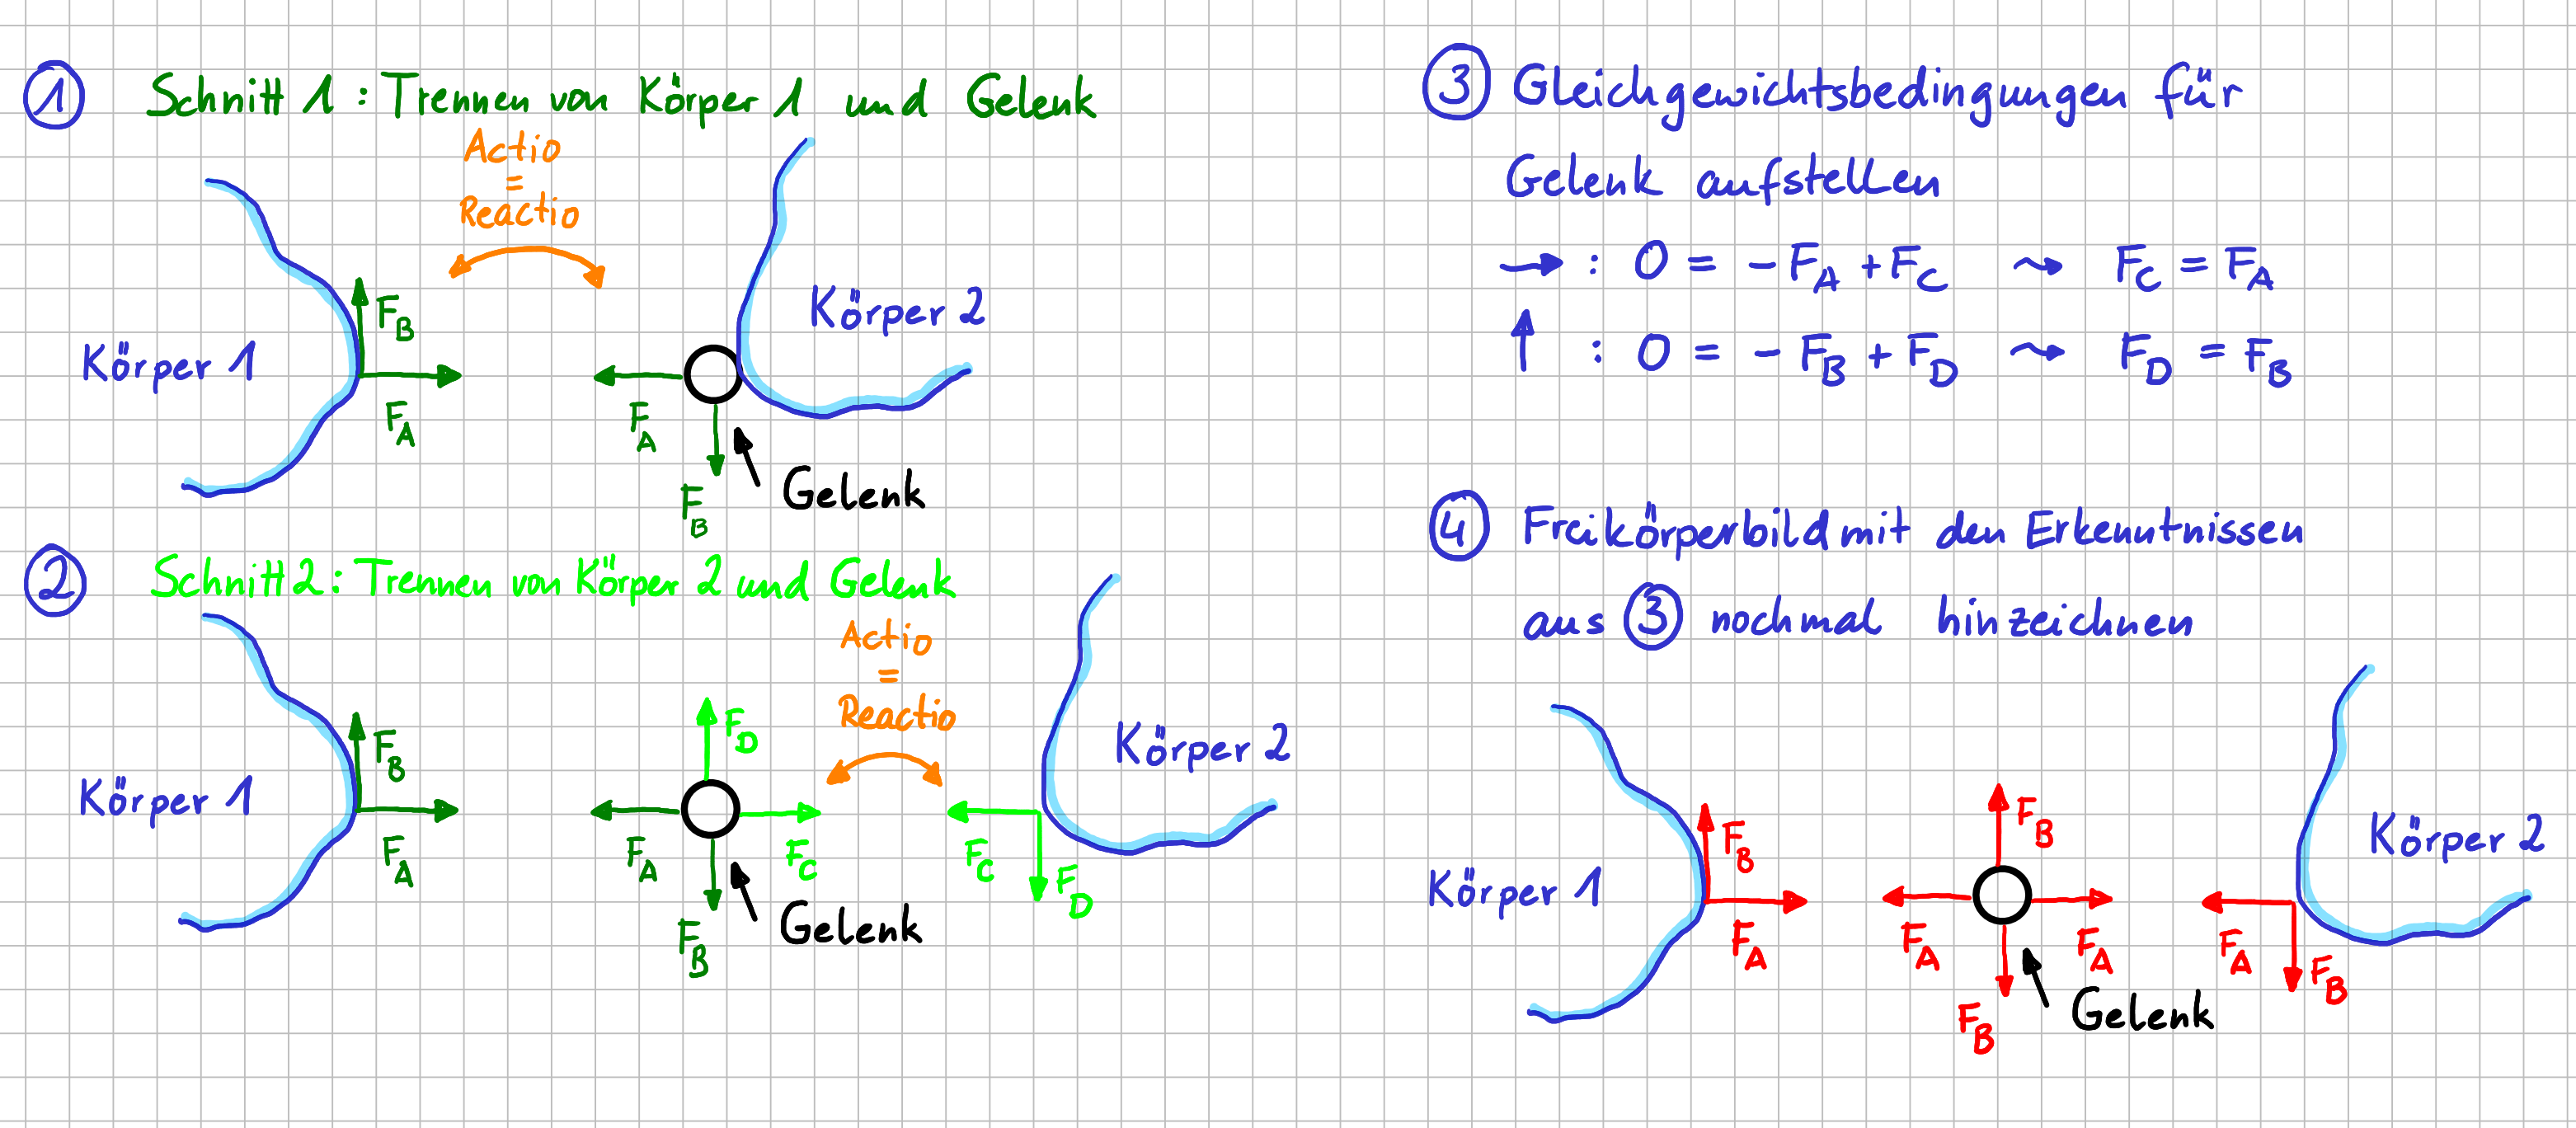 ① Schnitt 1: Trennen von Körper 1 und Gelenk
Actio
=
Reactio
F_B
Körper 1
F_A
F_A
F_B
Körper 2
Gelenk
② Schnitt 2: Trennen von Körper 2 und Gelenk
Actio
=
Reactio
F_B
Körper 1
F_A
F_D
F_A
F_C
F_B
Gelenk
F_C
F_D
Körper 2
③ Gleichgewichtsbedingungen für
Gelenk aufstellen
→ : 0 = -F_A + F_C ⤳ F_C = F_A
↑ : 0 = -F_B + F_D ⤳ F_D = F_B
④ Freikörperbild mit den Erkenntnissen
aus ③ nochmal hinzeichnen
F_B
Körper 1
F_A
F_B
F_A
F_A
F_B
Gelenk
F_A
F_B
Körper 2